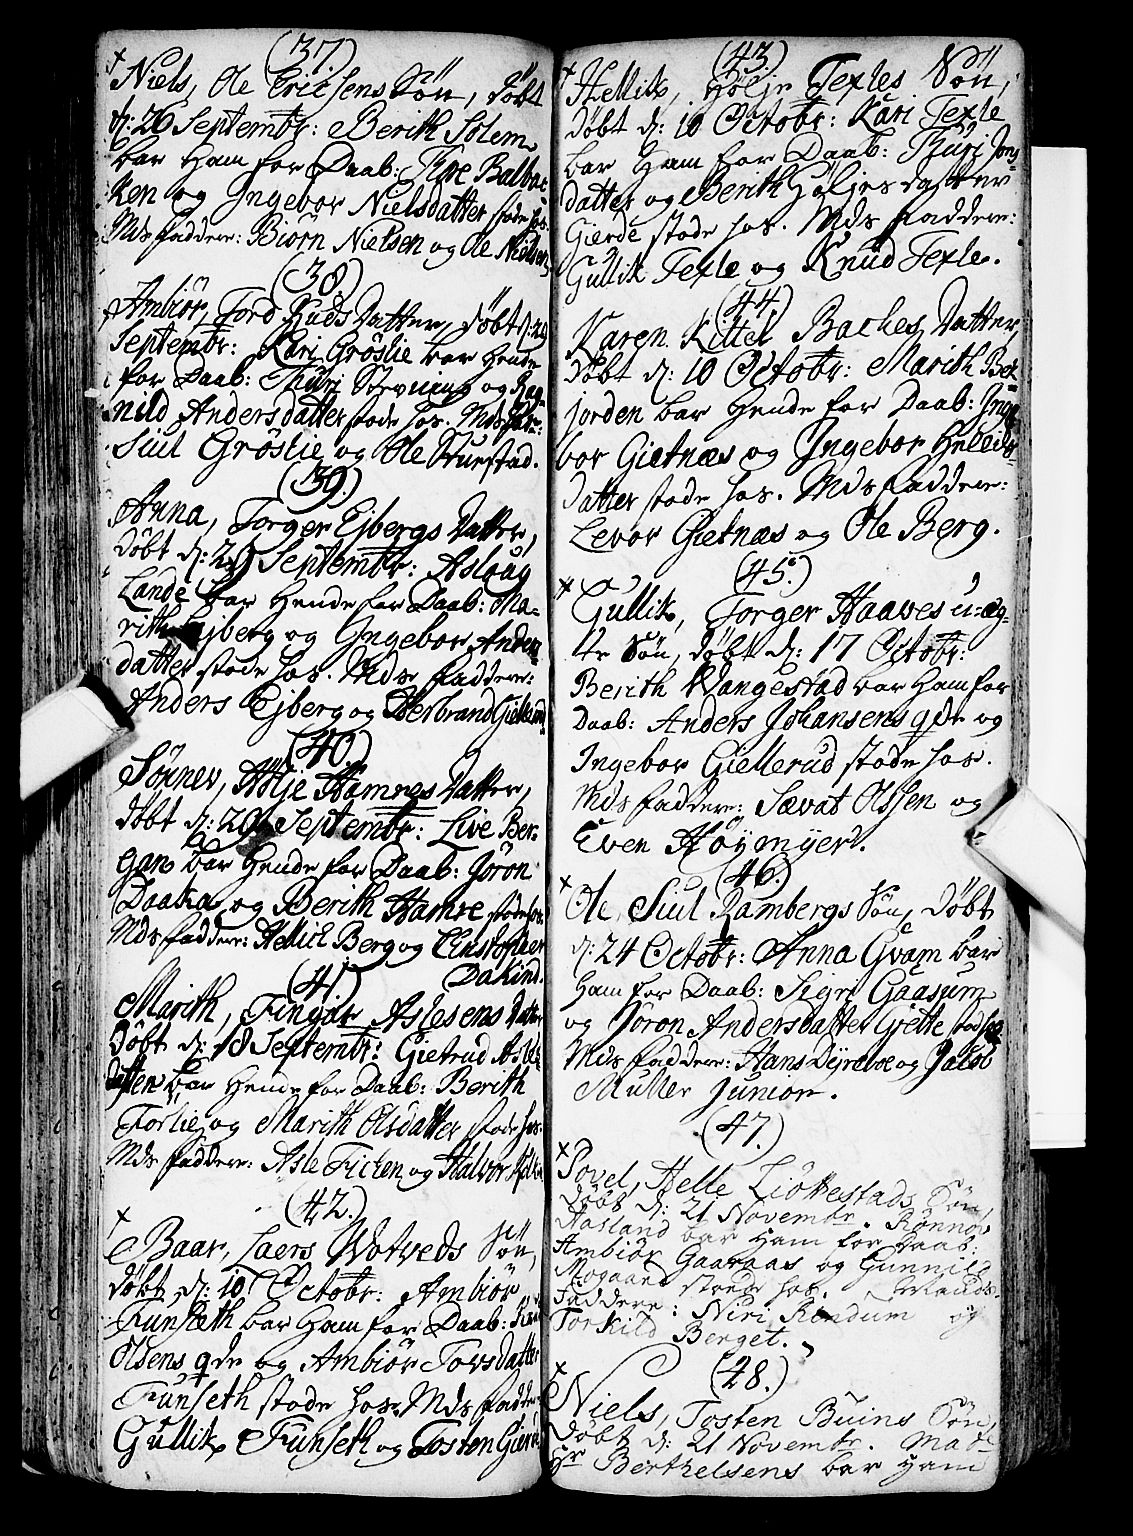 (37.)
Niels, Ole Ericsens Søn, døbt
d: 26 Septembr: Berith Solem
bar Ham for Daab: Thore Balbac
ken og Ingebor Nielsdatter stode hos.
Mds faddere: Biørn Nielsen og Ole Nielsen
(38.)
Ambiør, Tord Ruds Datter, døbt d: 29
Septembr: Kari Grøslie bar Hende
for Daab: Thuri Stevning og Rag-
nild Andersdatter stode hos. Mds fadr:
Siul Grøslie og Ole Struestad.
(39.)
Anna, Torger Ejbergs Datter,
døbt d: 29 Septembr: Aslaug
Lande bar Hende for Daab: Ma-
rith Ejberg og Ingebor Anders
datter stode hos. Mds faddere:
Anders Ejberg og Herbrand Giellerud
(40.)
Sønnev, Hølje Hamres Datter,
døbt d: 29 Septembr: Live Ber-
gan bar Hende for Daab: Jøron
Daaka og Berith Hamre stode hos.
Mds faddere: Hellich Berg og Christopher
Dakind.
(41)
Marith, Fingar Aslesens Datter
Døbt d: 18 Septembr: Gietrud Asle-
datter bar Hende for Daab: Berith
Forlie og Marith Olsdatter stode hos.
Mds faddere: Asle Ficken og Halvor
(42.)
Baar, Laers Wotveds Søn,
døbt d: 10 Octobr: Ambiør
Funseth bar Ham for Daab:
Olsens qde og Ambiør Torsdatter
Funseth stode hos. Mds faddere
Gullik Funseth og Tosten
(43.)
Hellik, Hølje Texles Søn,
døbt d: 10 Octobr: Kari Texle
bar Ham for Daab: Thuri Jons
datter og Berith Høljesdatter
Gierde stode hos. Mds faddere:
Gullik Texle og Knud Texle.
(44)
Karen Kittel Baches Datter,
døbt d: 10 Octobr: Marith Bek
jorden bar Hende for Daab: Inge
bor Gietnæs og Ingebor Hellids-
datter stode hos. Mds faddere:
Levor Gietnæs og Ole Berg.
(45.)
Gullik, Torger Haawes u=æg-
te Søn, døbt d: 17 Octobr:
Berith Wangestad bar Ham for
Daab: Anders Johansens qde og
Ingebor Giellerud stode hos.
Mds faddere: Sævat Olssen og
Even Høymyer.
(46.)
Ole, Siul Rambergs Søn, døbt
d: 24 Octobr: Anna Gvam bar
Ham for Daab: Sigri Gaasum
og Jøron Andersdatter Grette stod hos
Mds faddere: Hans Dyreboe og Jacob
Muller Junior.
(47.)
Povel, Helle Liokestads Søn,
døbt d: 21 Novembr. Rønnov
Hasland bar Ham for Daab:
Ambiør Gaaraas og Gunnild
Mogaarn stode hos. Mands-
Faddere: Niri Rondum og
Torkild Berget.
(48.)
Niels, Tosten Buins Søn,
Døbt d: 21 Novembr. Madme
Hr Berthelsens bar Ham